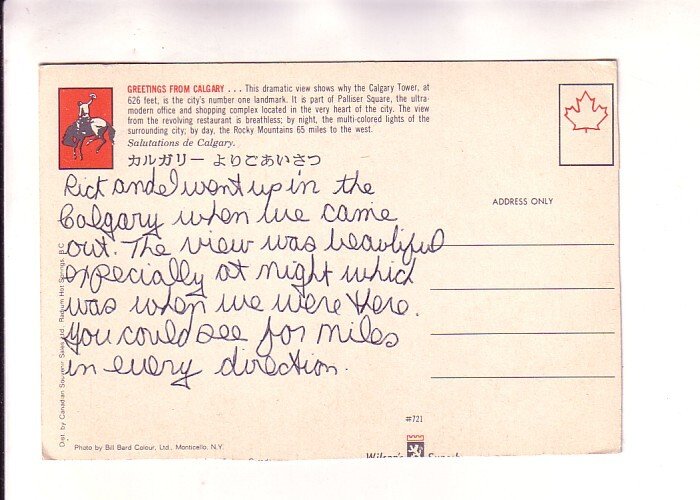 GREETINGS FROM CALGARY . . . This dramatic view shows why the Calgary Tower, at
626 feet, is the city's number one landmark. It is part of Palliser Square, the ultra-
modern office and shopping complex located in the very heart of the city. The view
from the revolving restaurant is breathless; by night, the multi-colored lights of the
surrounding city; by day, the Rocky Mountains 65 miles to the west.
Salutations de Calgary.
カルガリー よりごあいさつ
Rick and I went up in the
Calgary when we came
out. The view was beautiful
especially at night which
was when we were there.
You could see for miles
in every direction.
ADDRESS ONLY
Dist. by Canadian Souvenir Sales Ltd., Radium Hot Springs, B.C.
Photo by Bill Bard Colour, Ltd., Monticello, N.Y.
#721